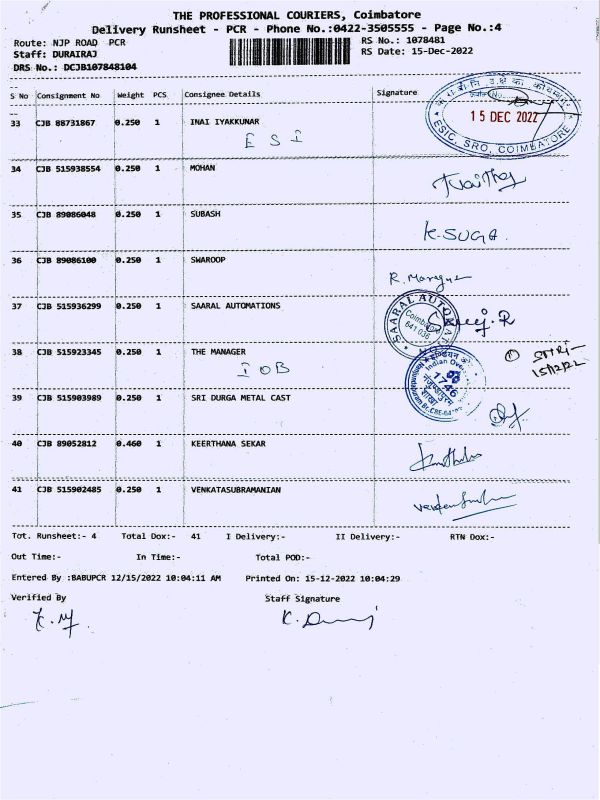 THE PROFESSIONAL COURIERS, Coimbatore
Delivery Runsheet - PCR - Phone No.:0422-3505555 - Page No.:4
Route: NJP ROAD PCR RS No.: 1078481
Staff: DURAIRAJ RS Date: 15-Dec-2022
DRS No.: DCJB107848104
S No Consignment No Weight PCS Consignee Details Signature
15 DEC 2022
ESIC, SRO, COIMBATORE
33 CJB 88731867 0.250 1 INAI IYAKKUNAR
E S I
34 CJB 515938554 0.250 1 MOHAN
35 CJB 89086048 0.250 1 SUBASH
K. SUGA.
36 CJB 89086100 0.250 1 SWAROOP
37 CJB 515936299 0.250 1 SAARAL AUTOMATIONS
SAARAL AUTOMAT
Coimbatore
641 036
38 CJB 515923345 0.250 1 THE MANAGER
I O B
Indian Over
1746
15/12/22
39 CJB 515903989 0.250 1 SRI DURGA METAL CAST
40 CJB 89052812 0.460 1 KEERTHANA SEKAR
41 CJB 515902485 0.250 1 VENKATASUBRAMANIAN
Tot. Runsheet:- 4 Total Dox:- 41 I Delivery:- II Delivery:- RTN Dox:-
Out Time:- In Time:- Total POD:-
Entered By :BABUPCR 12/15/2022 10:04:11 AM Printed On: 15-12-2022 10:04:29
Verified By Staff Signature